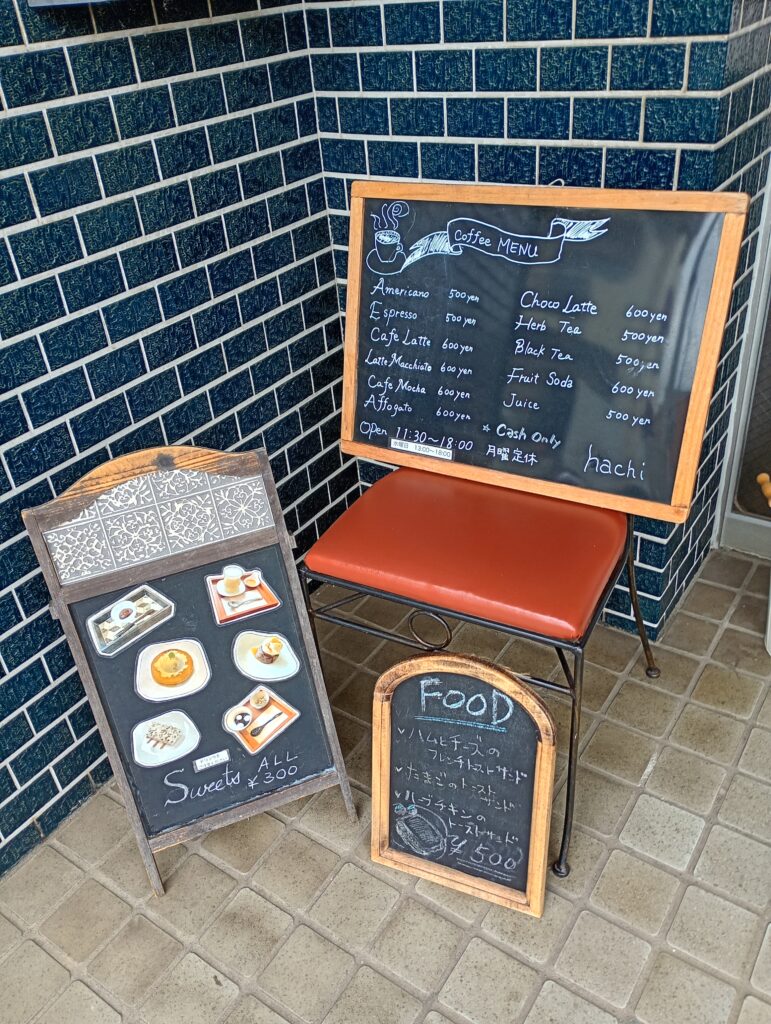 Coffee MENU
Americano 500yen
Espresso 500yen
Cafe Latte 600yen
Latte Macchiato 600yen
Cafe Mocha 600yen
Affogato 600yen
Choco Latte 600yen
Herb Tea 500yen
Black Tea 500yen
Fruit Soda 600yen
Juice 500yen
☆ Cash Only
Open 11:30～18:00 月曜定休
水曜日 13:00～18:00
hachi
Sweets ALL
¥300
FOOD
✓ハムとチーズの
フレンチトーストサンド
✓たまごのトースト
サンド
✓ハーブチキンの
トーストサンド
¥500